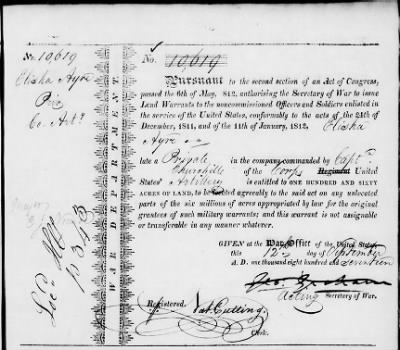 No. 10,619
Elisha Ayre
Co. Art?
WAR DEPARTMENT
No. 10,619
PURSUANT to the second section of an Act of Congress,
passed the 6th of May, 812, authorising the Secretary of War to issue
Land Warrants to the noncommissioned Officers and Soldiers enlisted in
the service of the United States, conformably to the acts of the 24th of
December, 1811, and of the 11th of January, 1812, Elisha
Ayre
late a Private in the company commanded by Capt.
Churchills of the Corps Regiment United
States' Artillery is entitled to ONE HUNDRED AND SIXTY
ACRES OF LAND, to be located agreeably to the said act on any unlocated
parts of the six millions of acres appropriated by law for the original
grantees of such military warrants; and this warrant is not assignable
or transferable in any manner whatever.
GIVEN at the War Office of the United States
this 12th day of September
A. D. one thousand eight hundred and seventeen
Geo. Graham
Acting Secretary of War.
Registered.
Nat. Cutting.
Clerk.